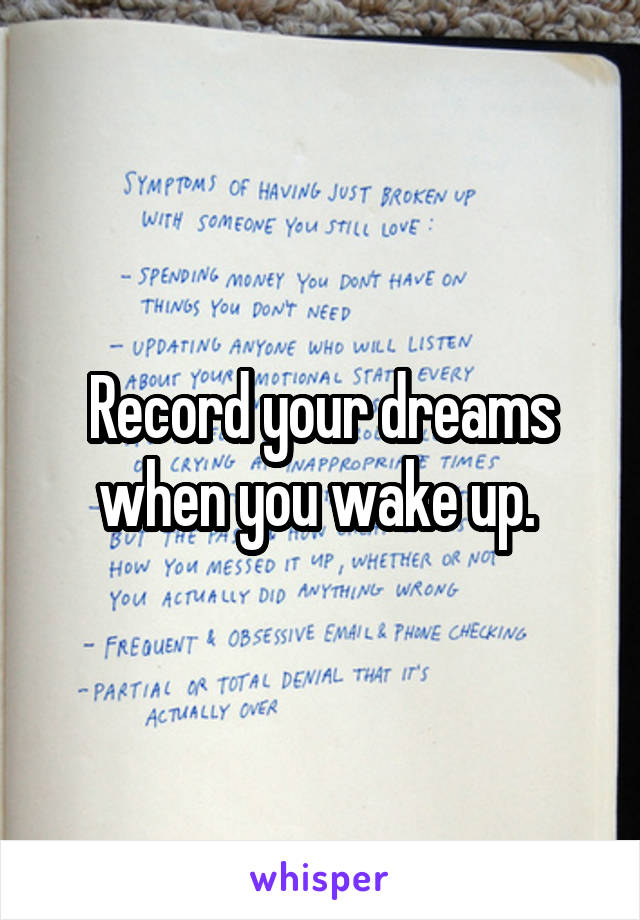 SYMPTOMS OF HAVING JUST BROKEN UP
WITH SOMEONE YOU STILL LOVE:
- SPENDING MONEY YOU DON'T HAVE ON
THINGS YOU DON'T NEED
- UPDATING ANYONE WHO WILL LISTEN
ABOUT YOUR EMOTIONAL STATE EVERY
Record your dreams
CRYING AT INAPPROPRIATE TIMES
when you wake up.
BUT THE PAST & HOW
HOW YOU MESSED IT UP, WHETHER OR NOT
YOU ACTUALLY DID ANYTHING WRONG
- FREQUENT & OBSESSIVE EMAIL & PHONE CHECKING
- PARTIAL OR TOTAL DENIAL THAT IT'S
ACTUALLY OVER
whisper